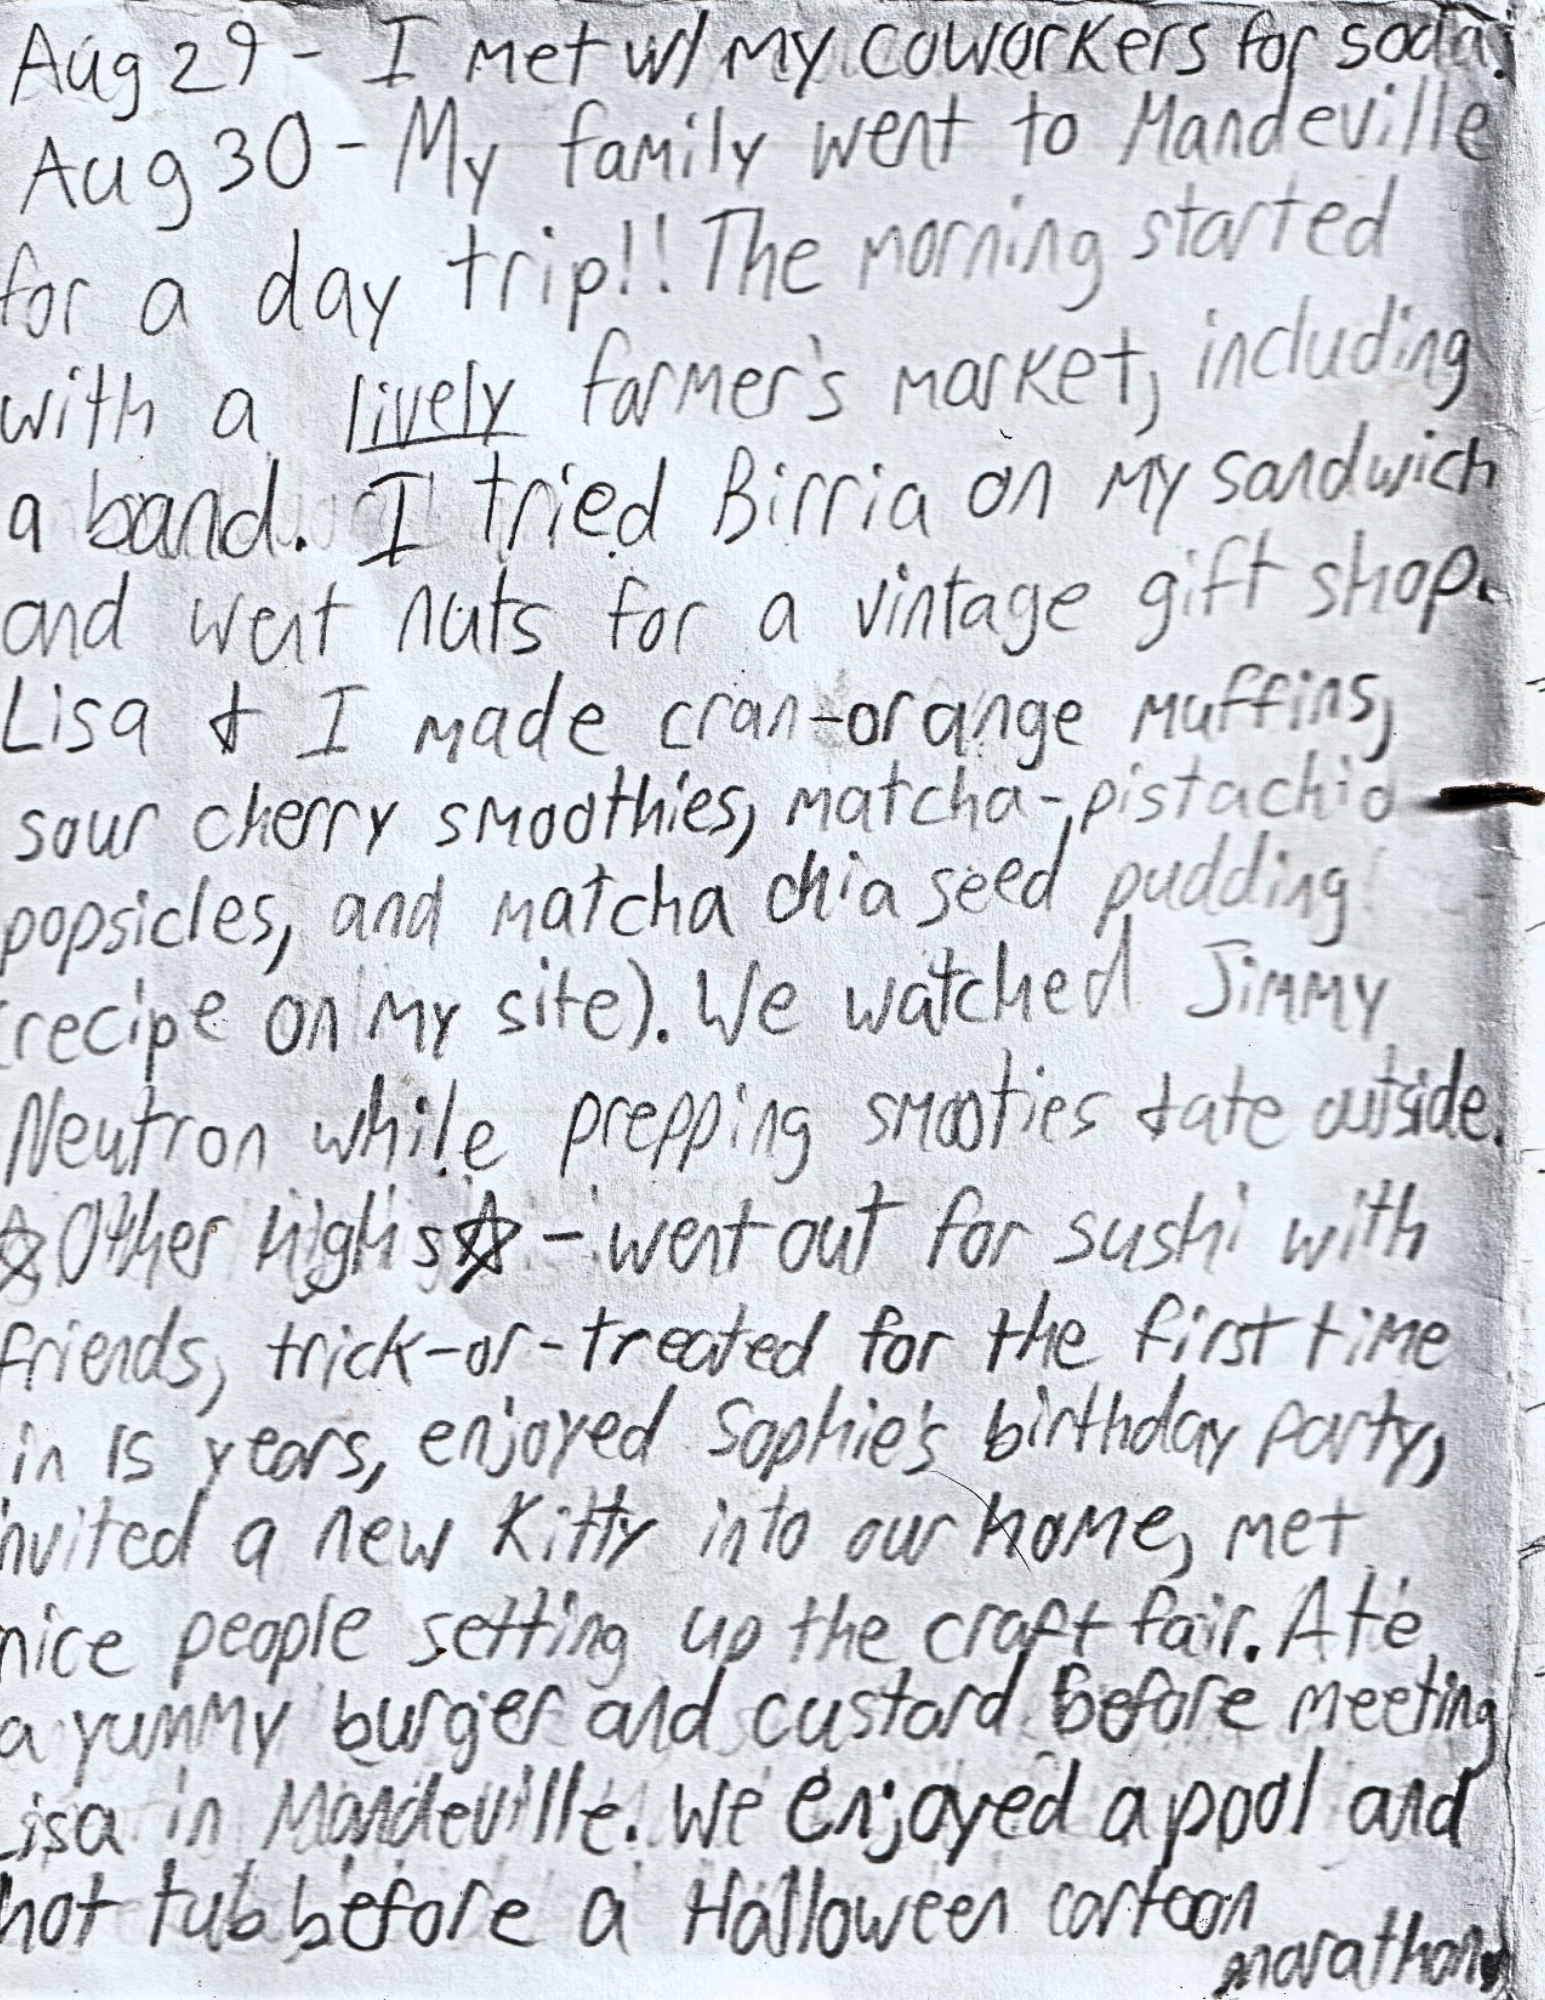 Aug 29 - I met w/ my coworkers for soda.
Aug 30 - My family went to Mandeville
for a day trip!! The morning started
with a lively farmer's market, including
a band. I tried Birria on my sandwich
and went nuts for a vintage gift shop.
Lisa & I made cran-orange muffins,
sour cherry smoothies, matcha-pistachio
popsicles, and matcha chia seed pudding!
(recipe on my site). We watched Jimmy
Neutron while prepping smooties & ate outside.
☆ Other highs ☆ - went out for sushi with
friends, trick-or-treated for the first time
in 15 years, enjoyed Sophie's birthday party,
invited a new kitty into our home, met
nice people setting up the craft fair. Ate
a yummy burger and custard before meeting
Lisa in Mandeville. We enjoyed a pool and
hot tub before a Halloween cartoon
marathon.